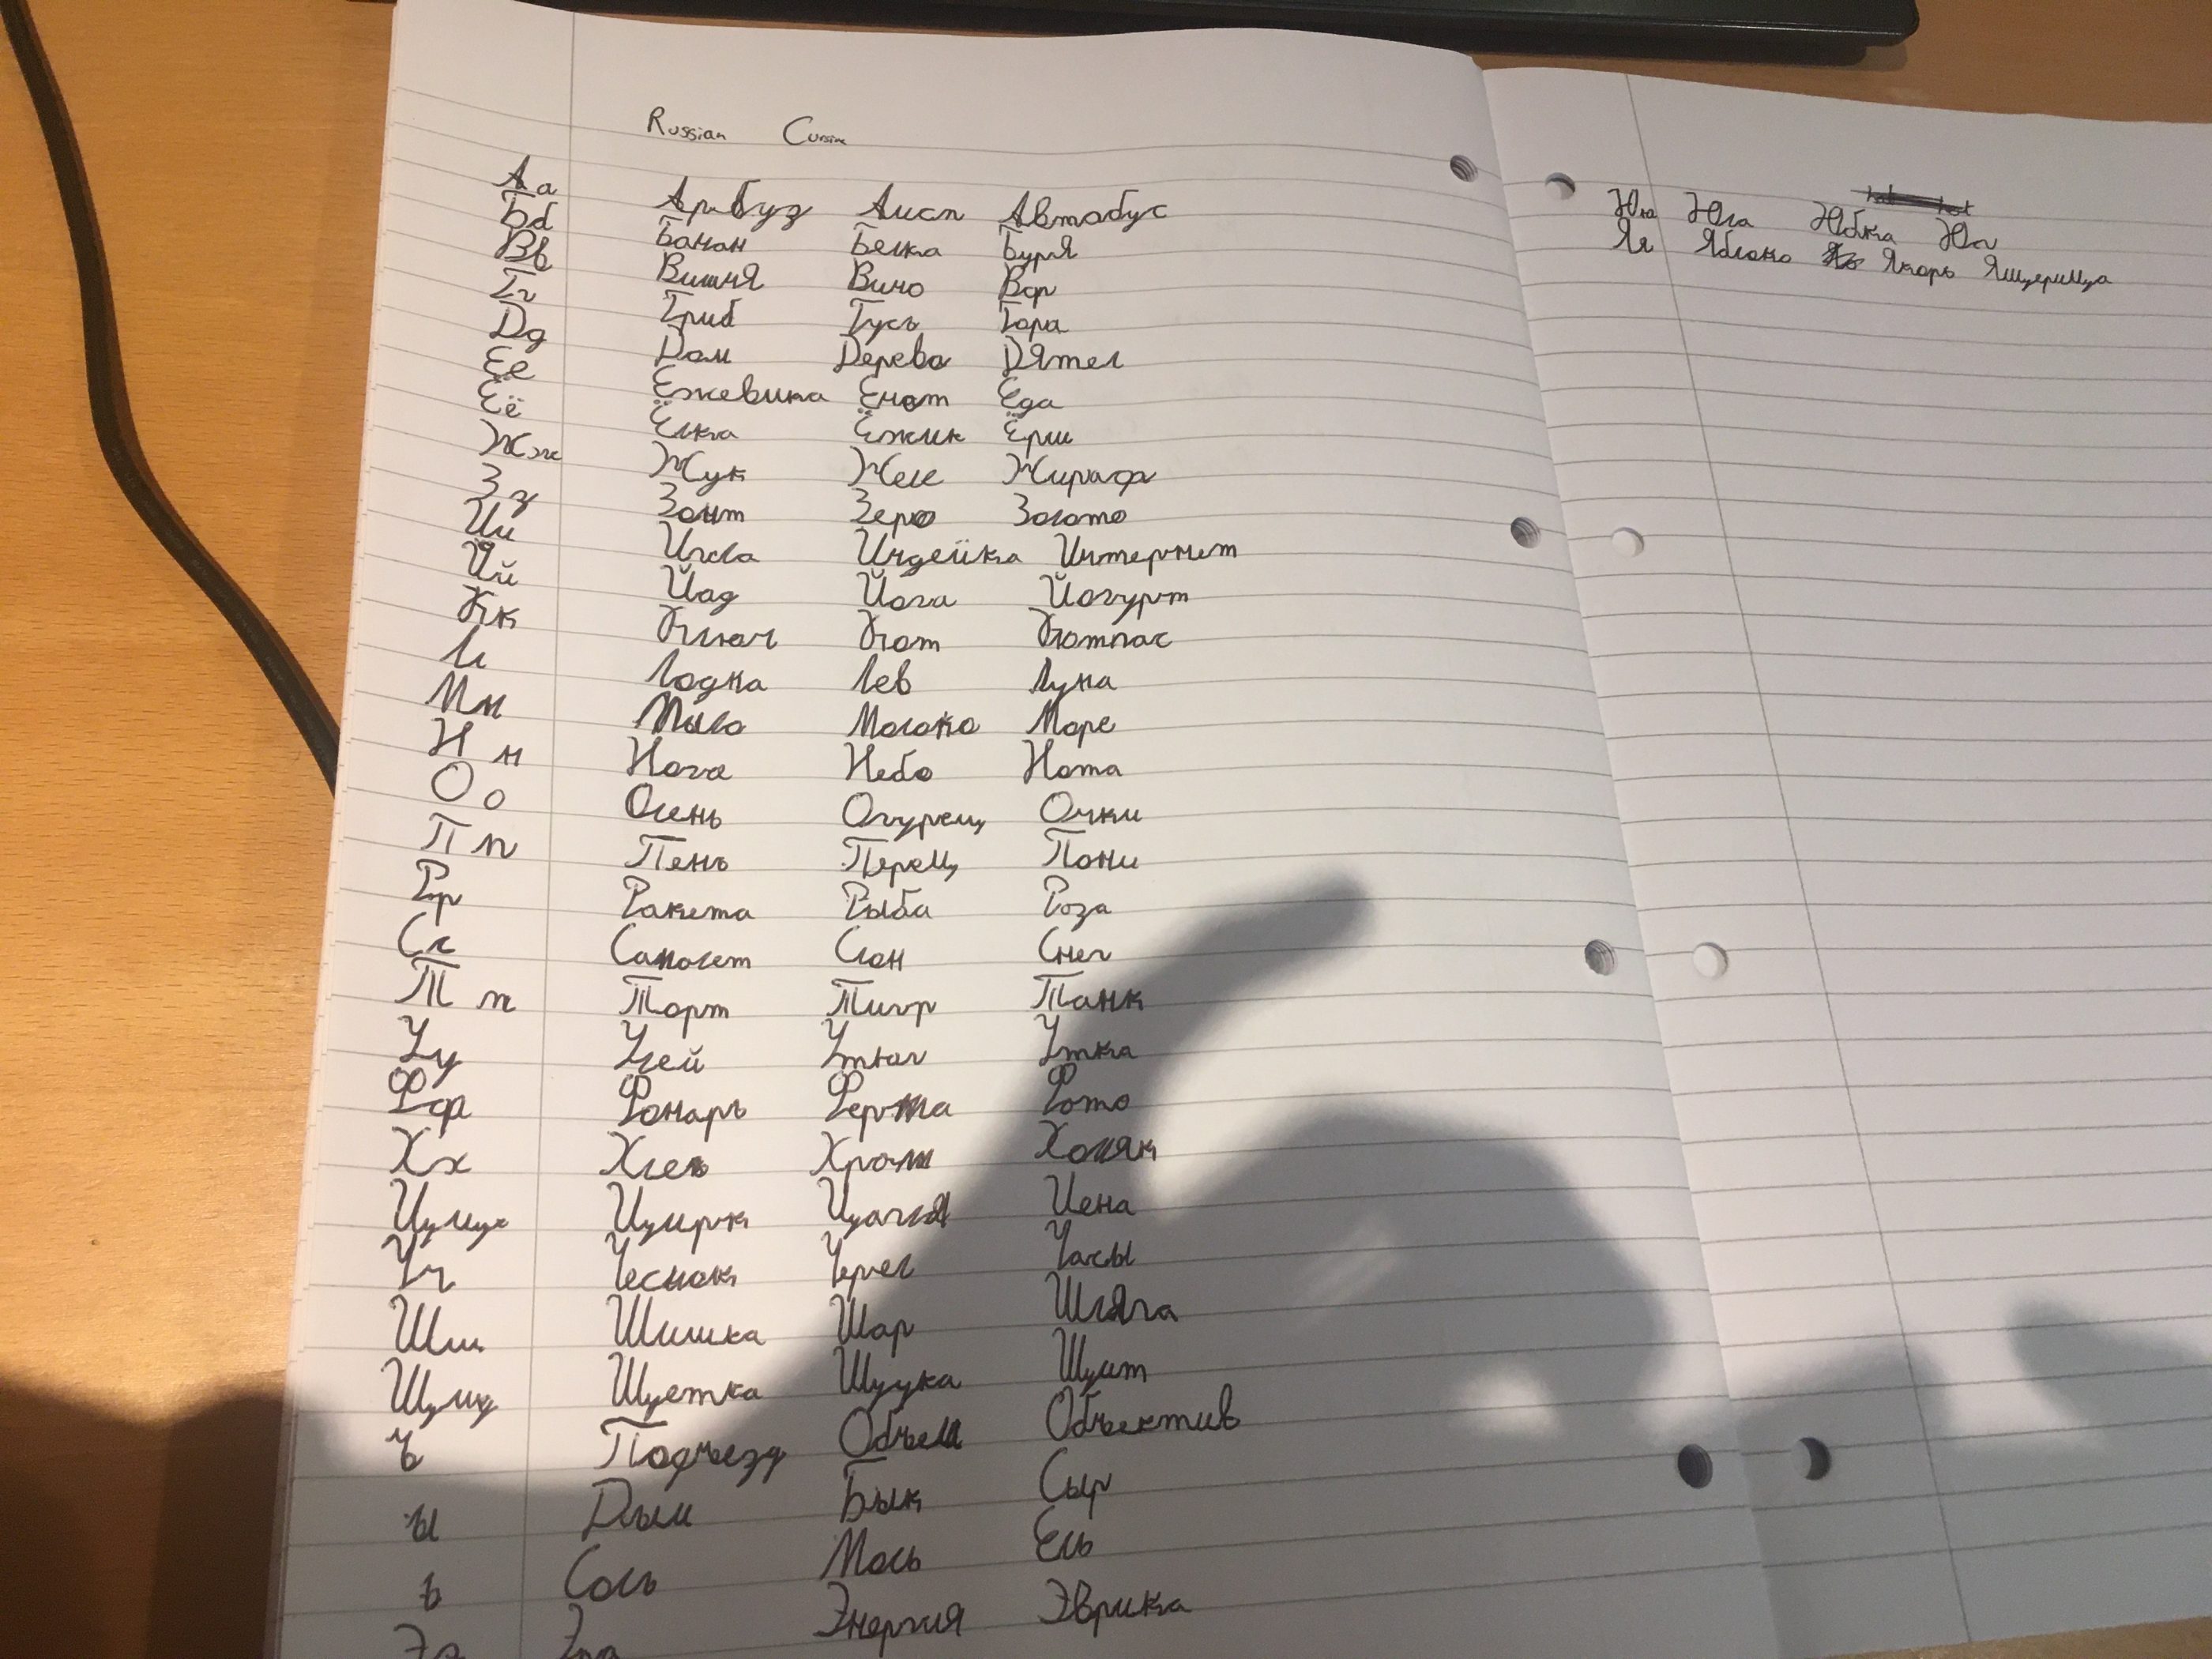 Russian Cursive
Аа Арбуз Аист Автобус
Бб Банан Белка Буря
Вв Вишня Вино Вор
Гг Гриб Гусь Гора
Дд Дом Дерево Дятел
Ее Ежевика Енот Еда
Ёё Ёлка Ёжик Ёрш
Жж Жук Желе Жираф
Зз Зонт Зерно Золото
Ии Игла Индейка Интернет
Йй Йод Йога Йогурт
Кк Ключ Кот Компас
Лл Лодка Лев Луна
Мм Мыло Молоко Море
Нн Нога Небо Нота
Оо Олень Огурец Очки
Пп Пень Перец Пони
Рр Ракета Рыба Роза
Сс Самолет Слон Снег
Тт Торт Тигр Танк
Уу Улей Утюг Утка
Фф Фонарь Ферма Фото
Хх Хлеб Храм Хомяк
Цц Цирк Цапля Цена
Чч Чеснок Часы
Шш Шишка Шар Шляпа
Щщ Щетка Щука Щит
ъ Подъезд Объем Объектив
ы Дым Бык Сыр
ь Соль Моль Ель
Ээ Энергия Эврика
Юю Юла Юбка Юг
Яя Яблоко Якорь Ящерица